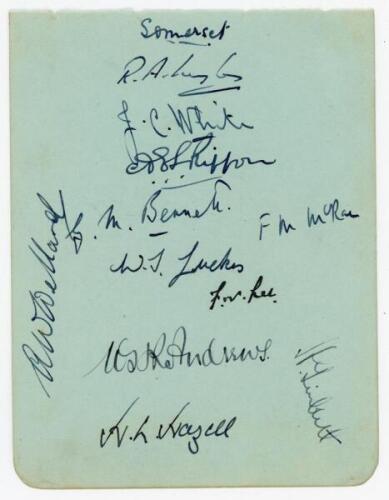 Somerset
R. A. Ingle
J. C. White
A E S Rippon
G. M. Bennett.
F M McRae
W. T. Luckes
F. S. Lee
W H R Andrews.
H. L. Hazell
A W Wellard
H Gimblett